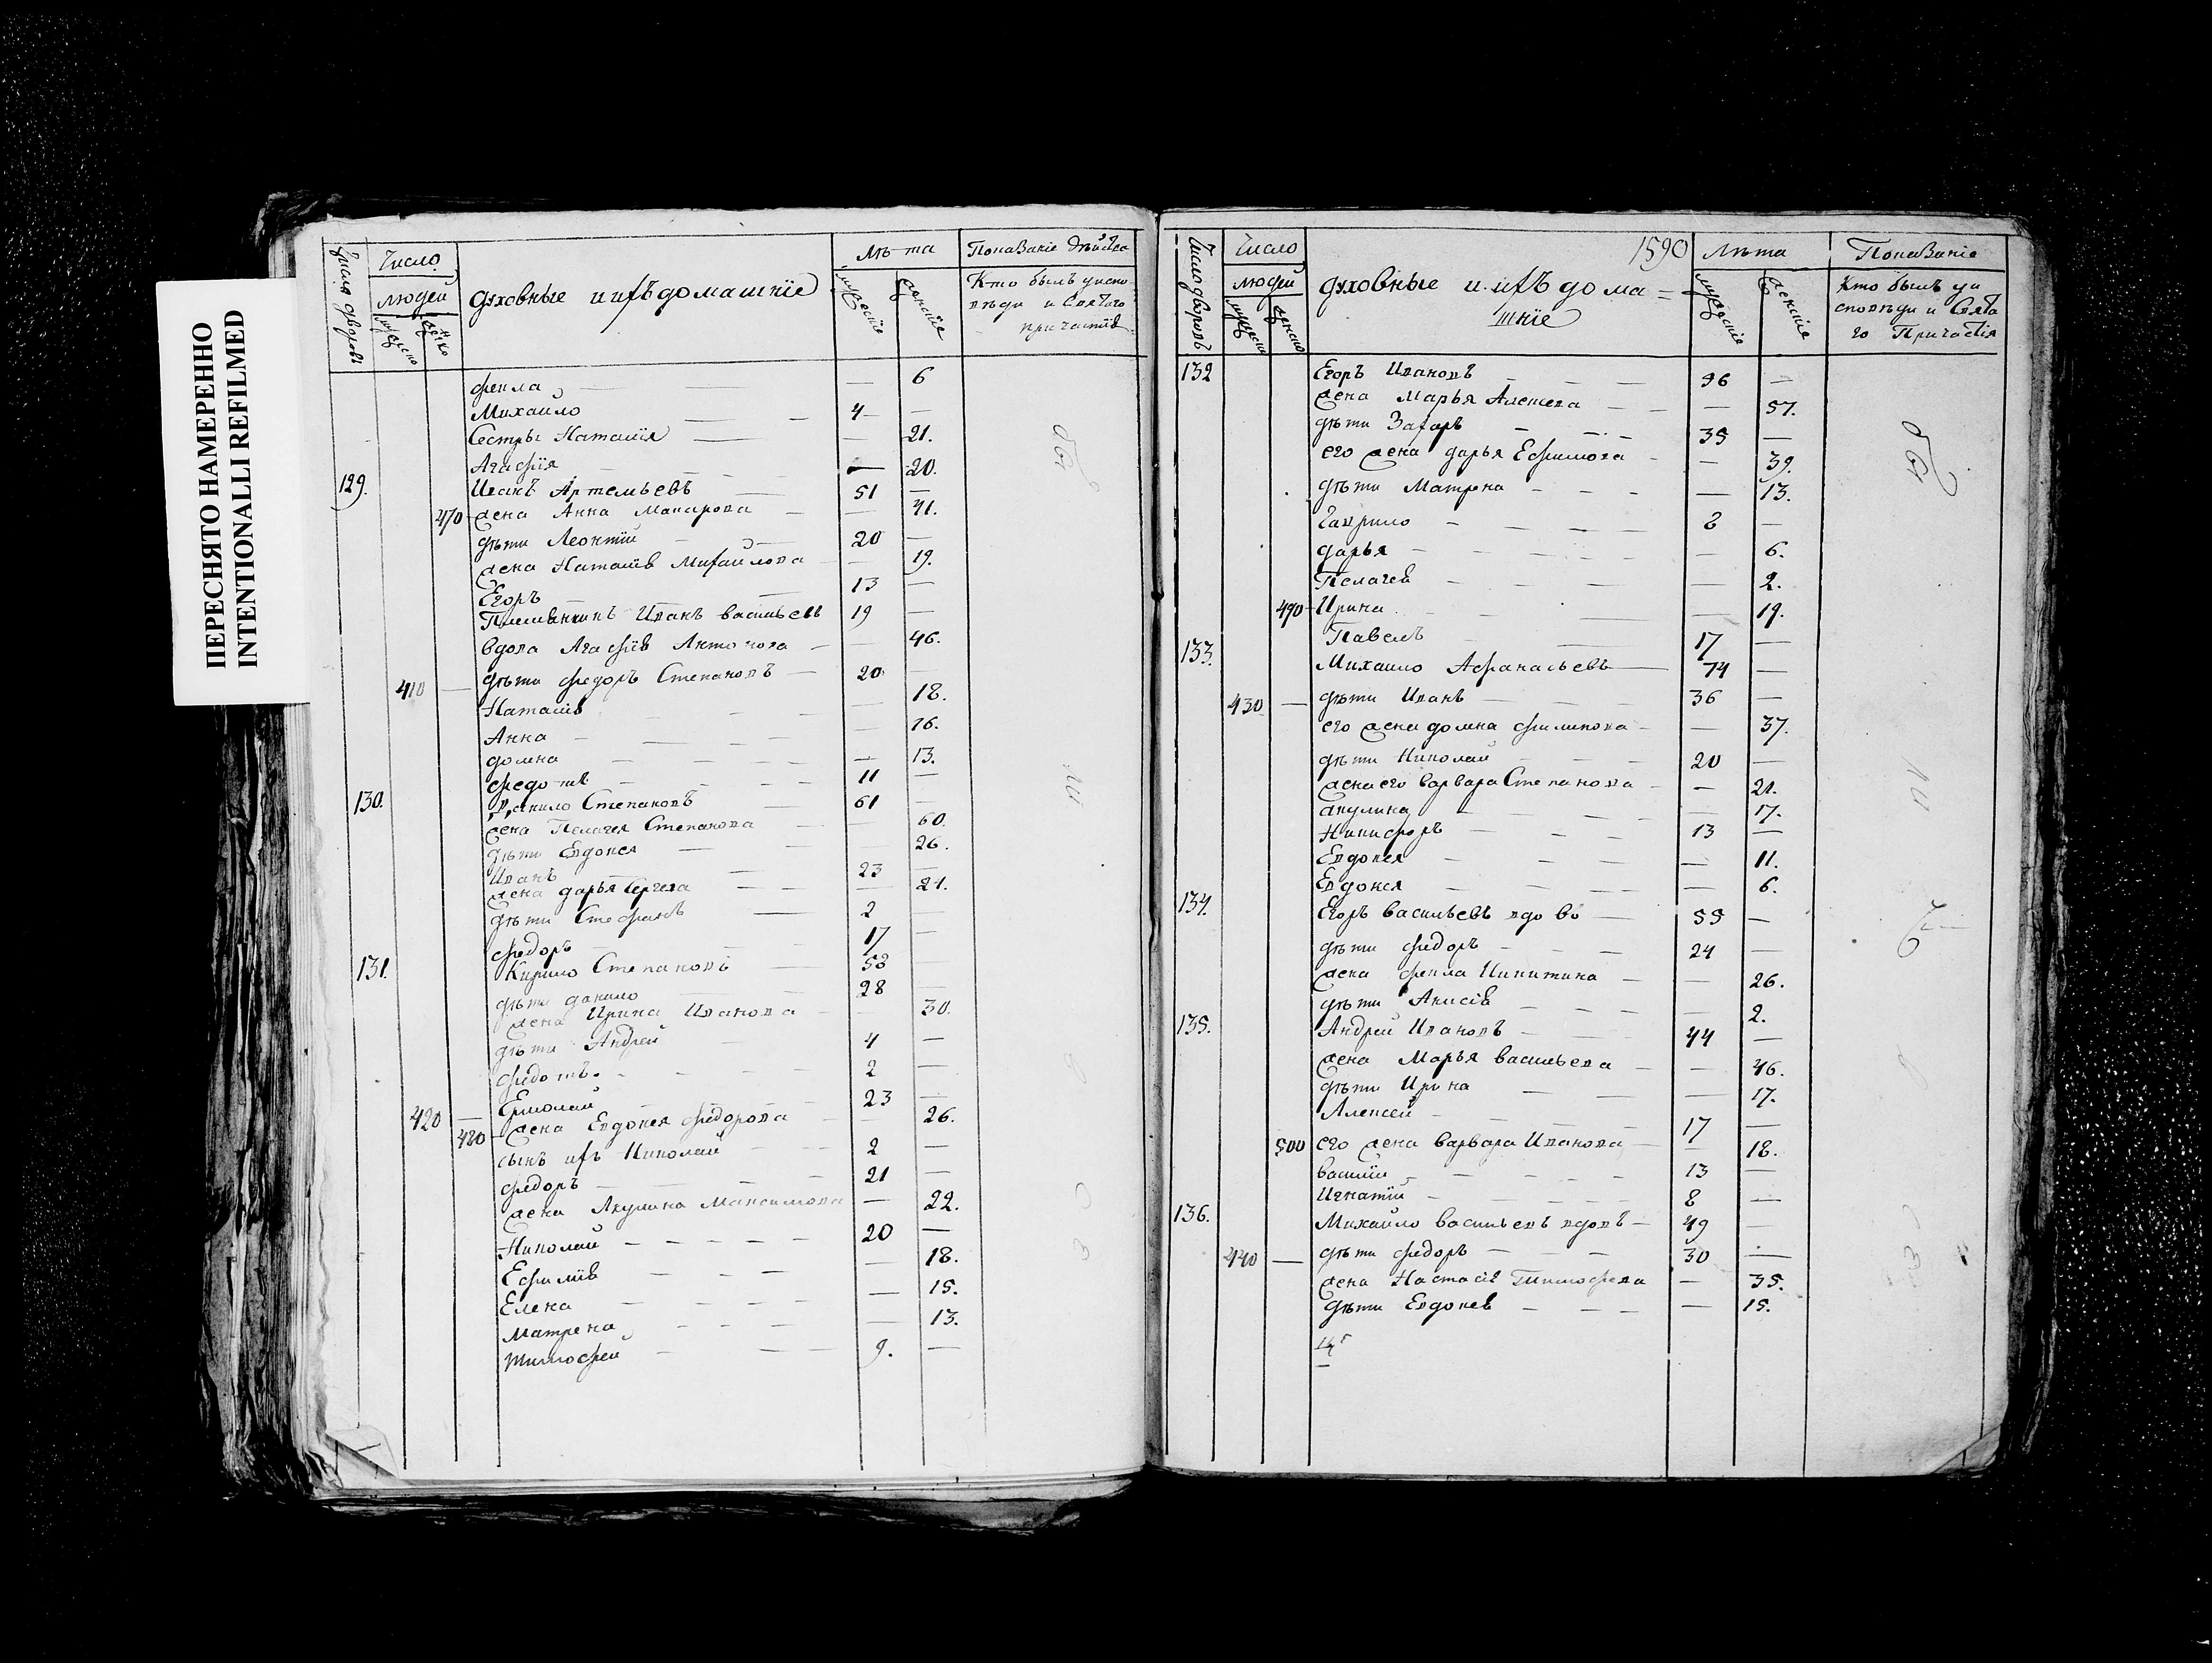 ПЕРЕСНЯТО НАМЕРЕННО
INTENTIONALLI REFILMED
Число дворовъ
Число
людей
мужеско
женско
духовные и ихъ домашнїе
Лѣта
мужескіе
женскіе
Показание действа
Кто былъ у испо
вѣди и Святаго
причастїя
фекла 6
Михайло 4
Сестры Наталїя 21.
Агафїя 20.
129. Иванъ Артемьевъ 51
470 жена Анна Макарова 41.
дѣти Леонтїй 20
жена Наталїя Михайлова 19.
Егоръ 13
Племянникъ Иванъ васильевъ 19
вдова Агафїя Антонова 46.
410 дѣти федоръ Степановъ 20
Наталїя 18.
Анна 16.
домна 13.
федотъ 11
130. Данило Степановъ 61
жена Пелагея Степанова 60.
дѣти Евдокея 26.
Иванъ 23
жена дарья Сергева 21.
дѣти Стефанъ 2
федоръ 17
131. Кирило Степановъ 58
дѣти данило 28
жена Ирина Иванова 30.
дѣти Андрей 4
федотъ 2
420 Ермолай 23
480 жена Евдокея федорова 26.
сынъ ихъ Николай 2
федоръ 21
жена Акулина Максимова 22.
Николай 20
Ефимїя 18.
Елена 15.
матрена 13.
тимофей 9.
Число дворовъ
Число
людей
мужеско
женско
1590
духовные и ихъ дома=
шнїе
Лѣта
мужескіе
женскіе
Показание
Кто былъ у и
споведи и Свята
го Причастїя
132 Егоръ Ивановъ 96
жена Марья Алексеева 57.
дѣти Захаръ 35
его жена дарья Ефимова 39.
дѣти Матрена 13.
Гаврило 8
дарья 6.
Пелагея 2.
490 Ирина 19.
Павелъ 17
133. Михаило Афанасьевъ 74
430 дѣти Иванъ 36
его жена домна филипова 37.
дѣти Николай 20
жена его варвара Степанова 21.
акулина 17.
Никифоръ 13
Евдокея 11.
Евдокея 6.
134. Егоръ васильевъ вдовъ 55
дѣти федоръ 24
жена фекла Никитина 26.
дѣти Анисія 2.
135. Андрей Ивановъ 44
жена Марья васильева 46.
дѣти Ирина 17.
Алексей 17
500 его жена варвара Иванова 18.
василїй 13
Игнатїй 8
136. Михайло васильевъ вдовъ 49
440 дѣти федоръ 30
жена Настасїя Тимофеева 35.
дѣти Евдокея 15.